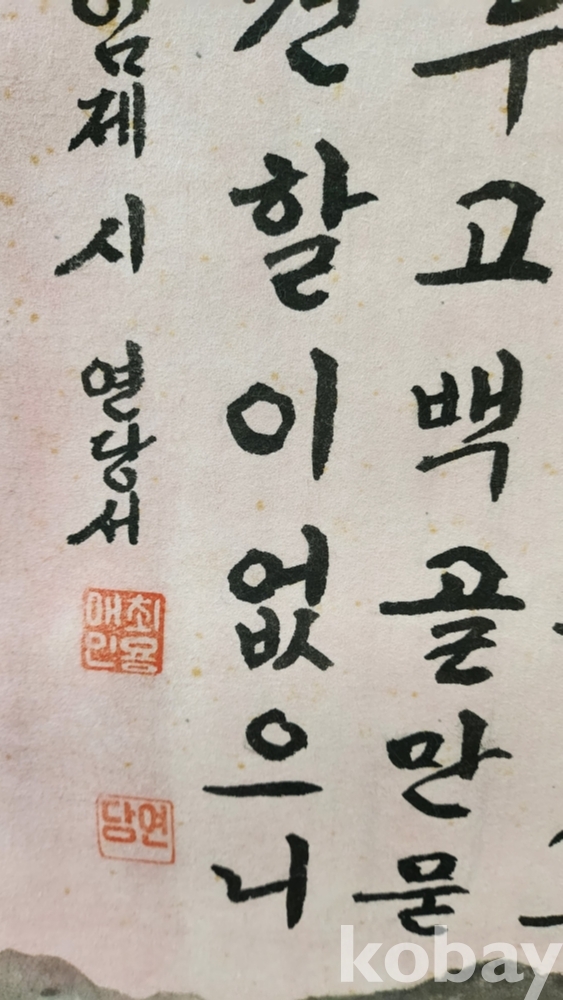 두고백골만묻
권할이없으니
임제 시 연당서
최
연당
kobay